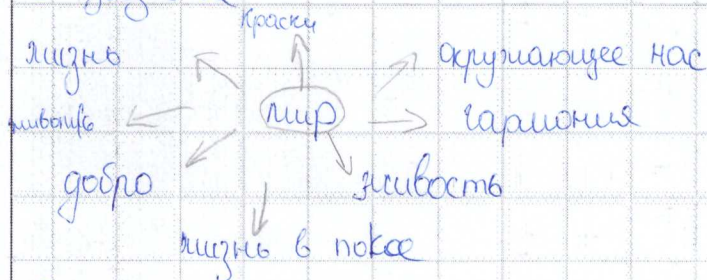 краски
жизнь
окружающее нас
мир
гармония
добро
живость
жизнь в покое